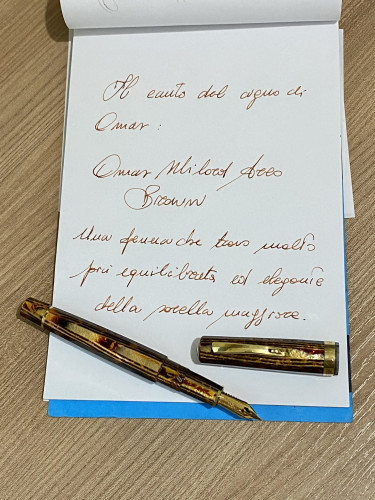 Il canto del cigno di
Omar:
Omas Milord Arco
Brown
Una penna che trovo molto
più equilibrata ed elegante
della sorella maggiore.